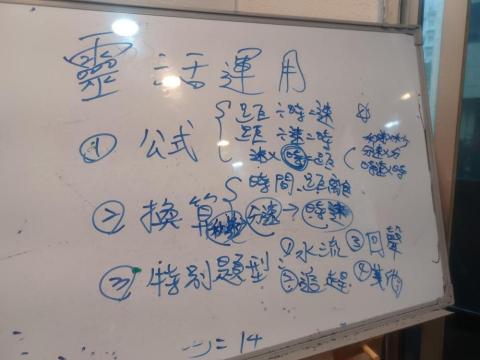 靈活運用
① 公式
距÷時=速
距÷速=時
速×時=距
分速×分
時速×時
② 換算
時間、距離
分速→時速
③ 特別題型
① 水流 ③ 回聲
② 追趕 ④
=14